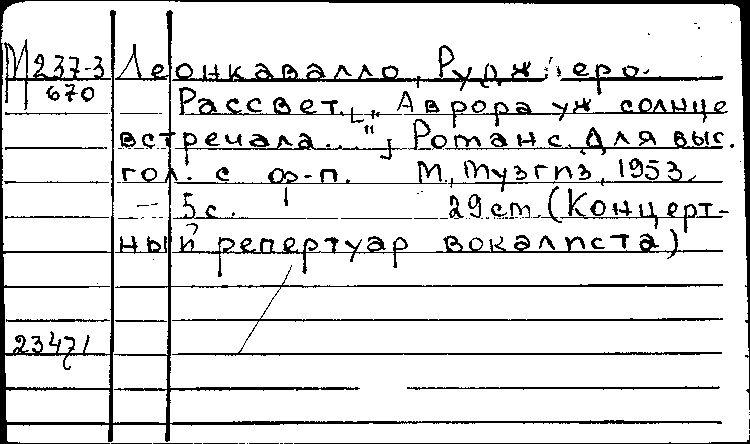 М 237-3 Леонкавалло, Руджиеро.
670 Рассвет. ["Аврора уж солнце
встречала..."] Романс. Для выс.
гол. с ф-п. М., Музгиз, 1953.
— 5 с. 29 cm. (Концерт-
ный репертуар вокалиста)
23471